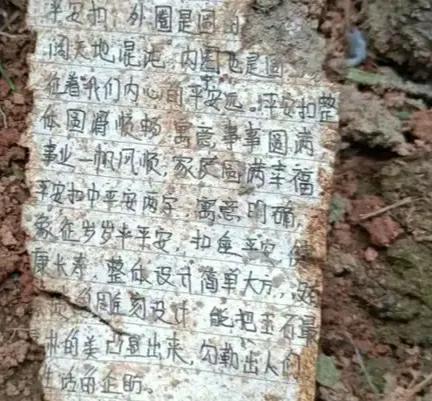 平安扣，外圈是圆
阔天地混沌，内圈也是圆
征着我们内心的平安远。平安扣整
体圆滑顺畅，寓意，事事圆满
事业一帆风顺，家庭圆满幸福
平安扣中平安两字，寓意明确，
象征岁岁平平安，扣住平安，健
康长寿，整体设计简单大方，
的雕刻设计，能把玉石最
朴的美凸显出来，勾勒出人们
生活的企盼。